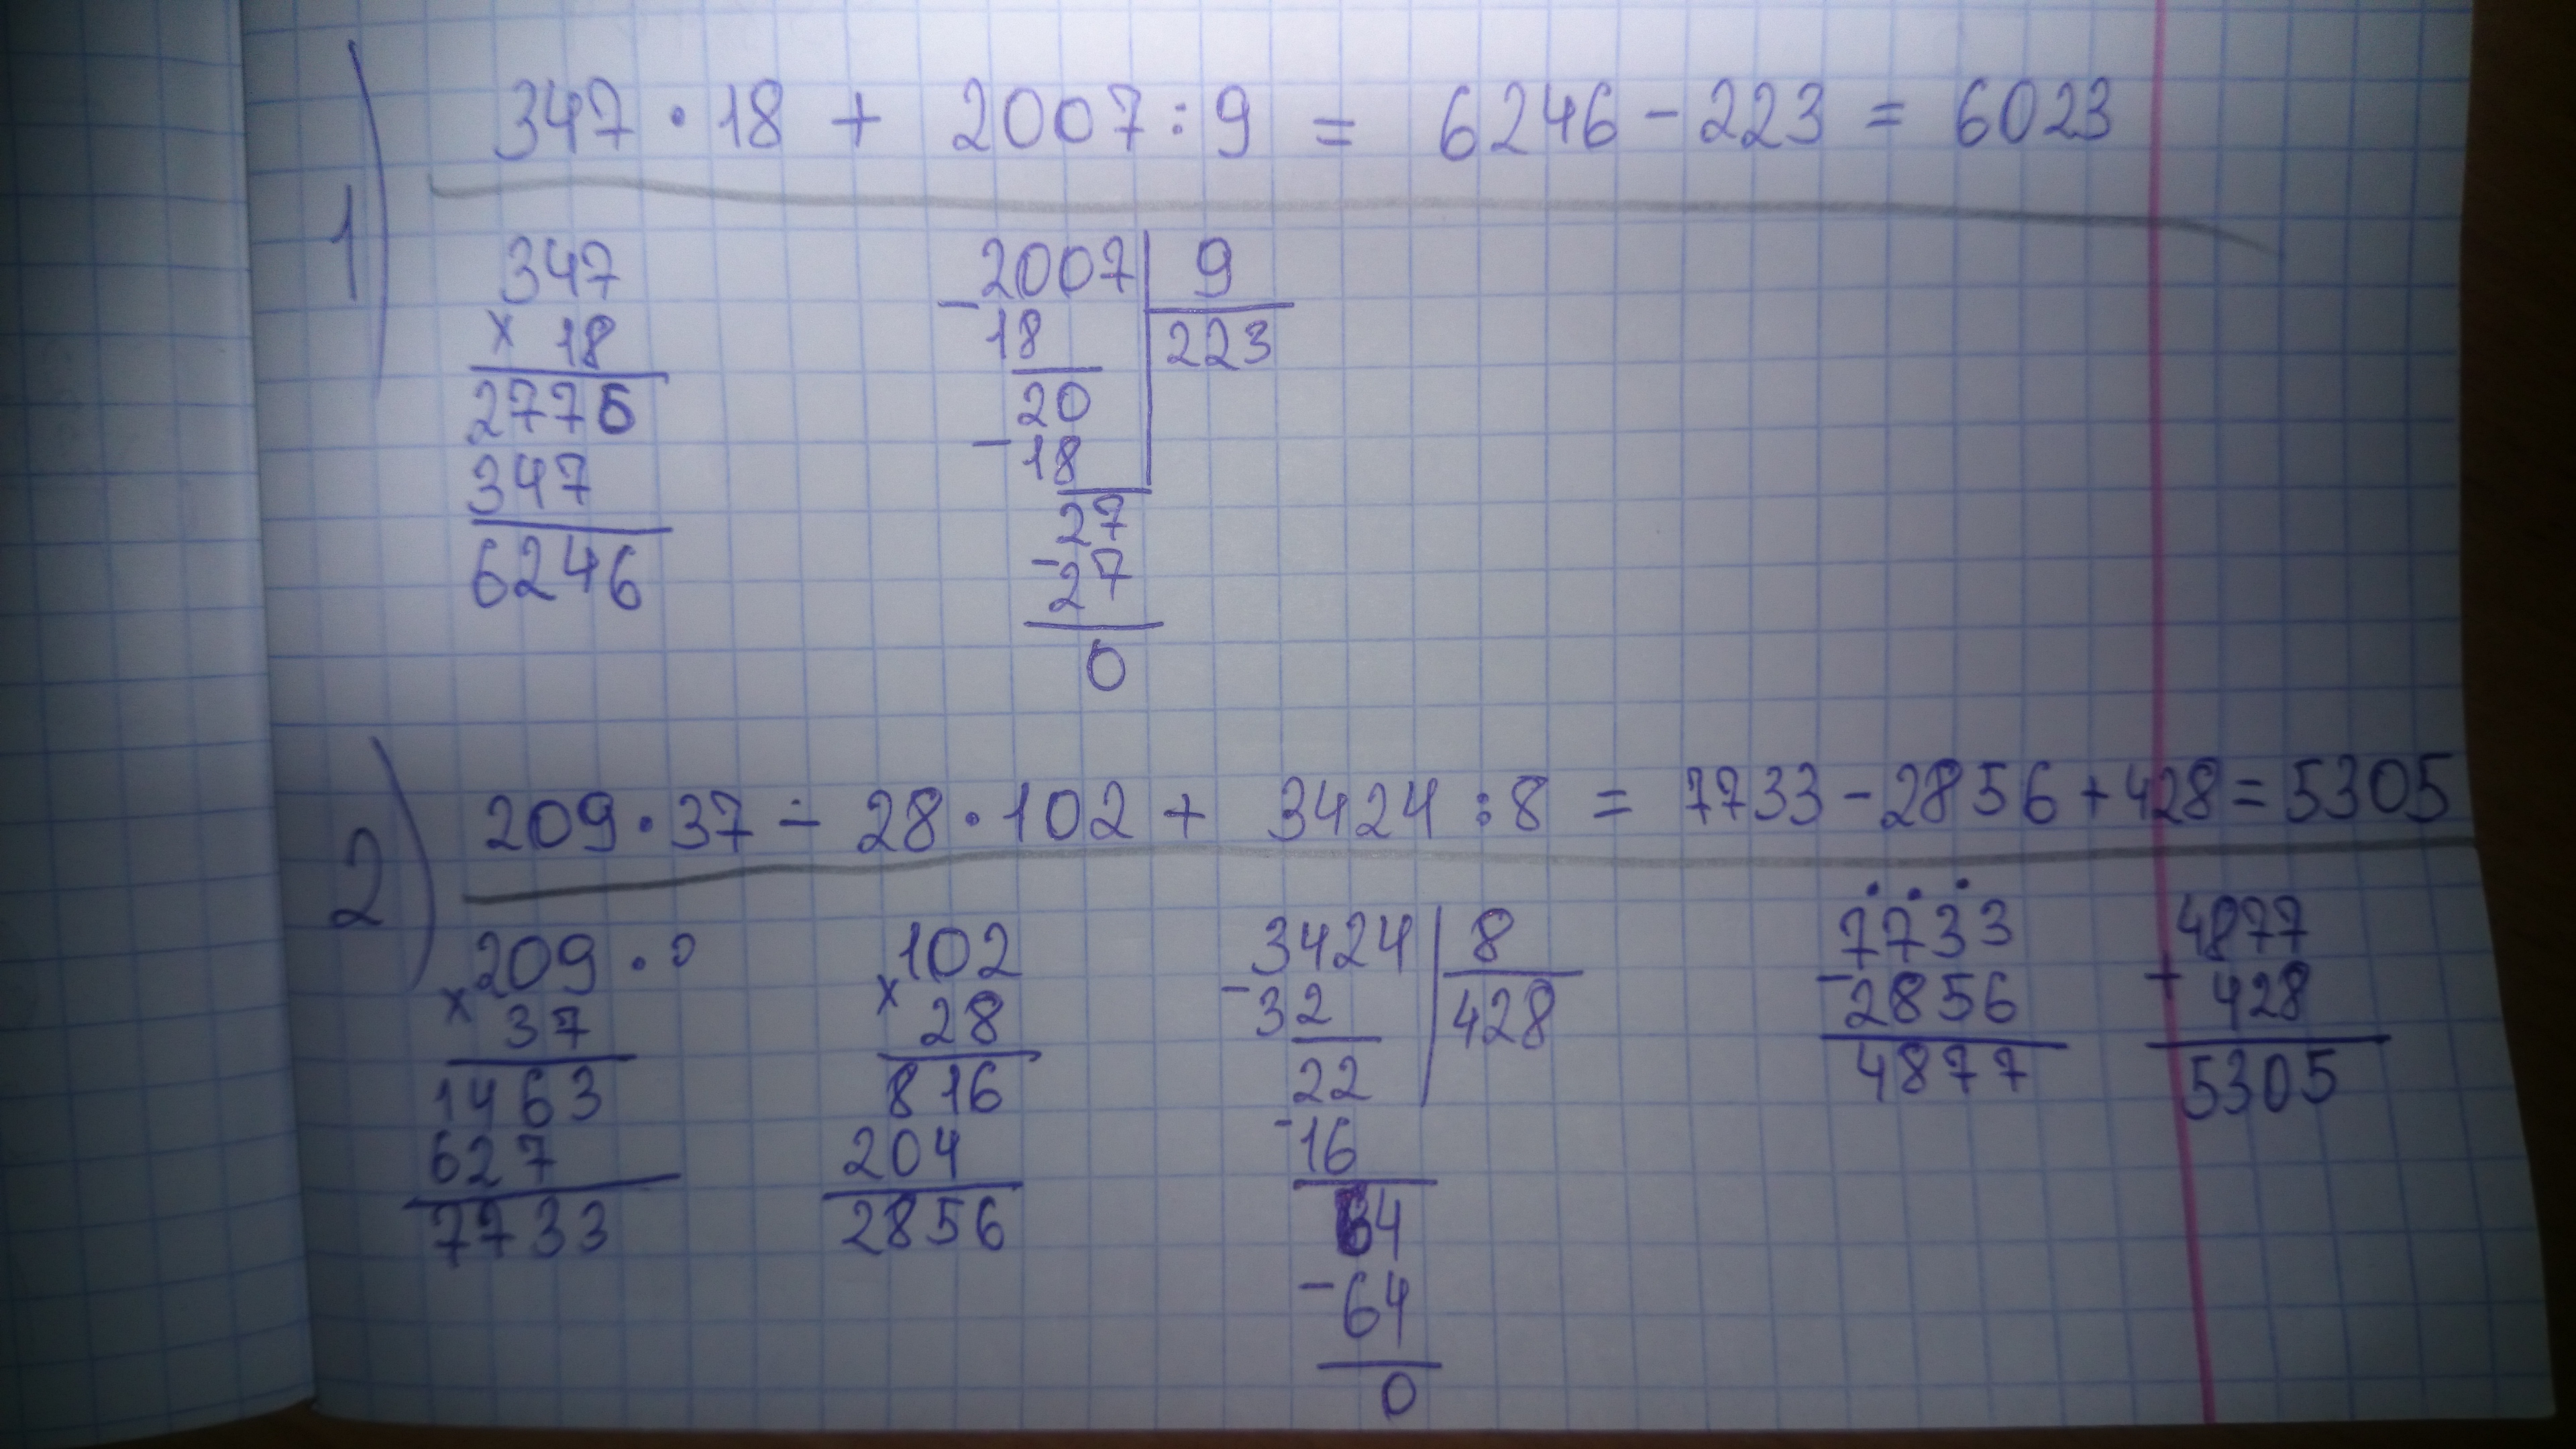 1) 347 · 18 + 2007 : 9 = 6246 - 223 = 6023
347
x 18
2776
347
6246
- 2007 | 9
18 223
20
- 18
27
- 27
0
2) 209 · 37 - 28 · 102 + 3424 : 8 = 7733 - 2856 + 428 = 5305
209 ·
x 37
1463
627
7733
102
x 28
816
204
2856
- 3424 | 8
32 428
22
- 16
64
- 64
0
7733
- 2856
4877
4877
+ 428
5305